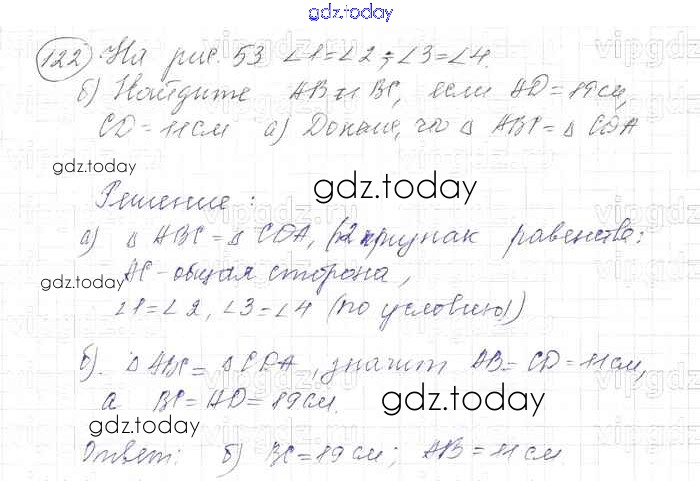 gdz.today
122 На рис. 53 ∠1=∠2; ∠3=∠4.
б) Найдите AB и BC, если AD=19см,
CD=11см а) Докаж., что Δ ABC = Δ CDA
gdz.today
Решение:
gdz.today
а) Δ ABC = Δ CDA, (2 признак равенства:
gdz.today
AC-общая сторона,
∠1=∠2, ∠3=∠4 (по условию))
б). Δ ABC = Δ CDA, значит AB=CD=11см,
а BC=AD=19см.
gdz.today
gdz.today
Ответ: б) BC=19см; AB=11см